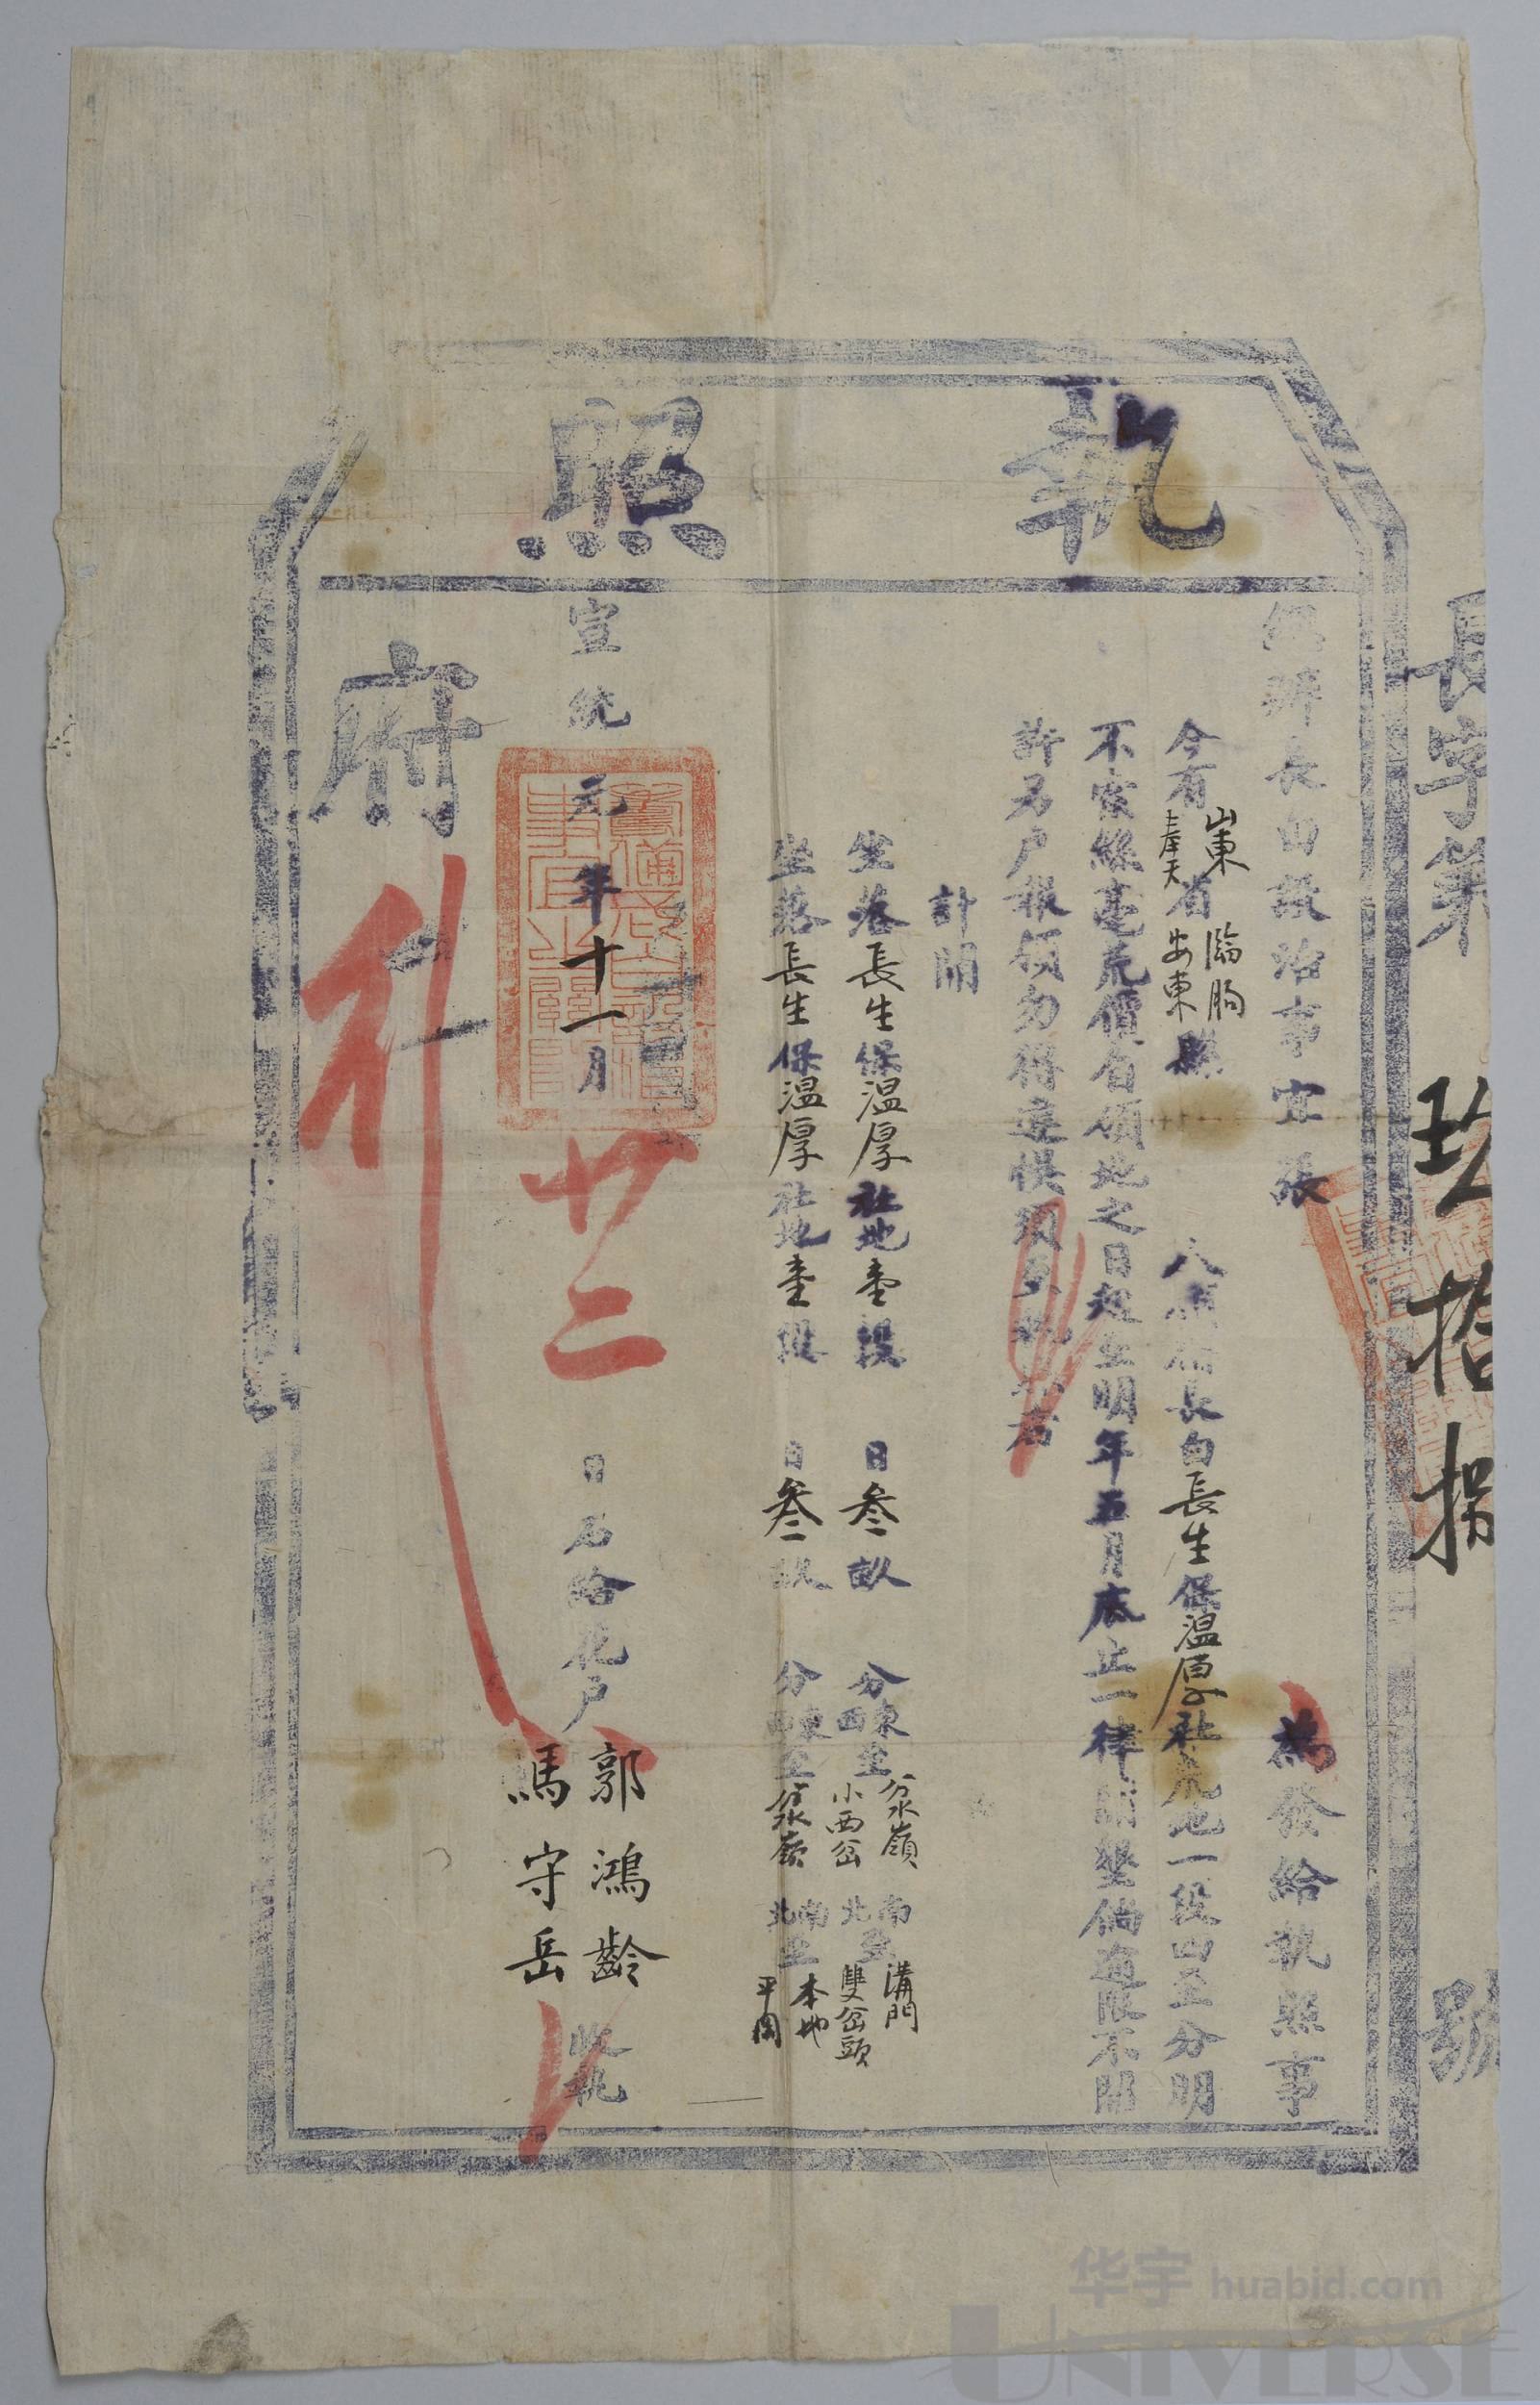 長字第玖拾捌號
執照
辦長白設治事宜張 為發給執照事
今有山東奉天省臨朐安東縣 人情佃長白長生保溫厚社荒地一段四至分明
不索絲毫荒價自領地之日起至明年五月底止一律開墾倘逾限不開
許另戶報領勿得違悞須至執照者
計開
坐落長生保溫厚社地壹段 日叁畝 分東至分水嶺西至小西岔南至溝門北至雙岔頭
坐落長生保溫厚社地壹段 日叁畝 分東西至分水嶺南至本地北至平岡
宣統元年十一月廿二日右給花戶郭鴻齡馬守岳收執
府行
华宇 huabid.com
UNIVERSE